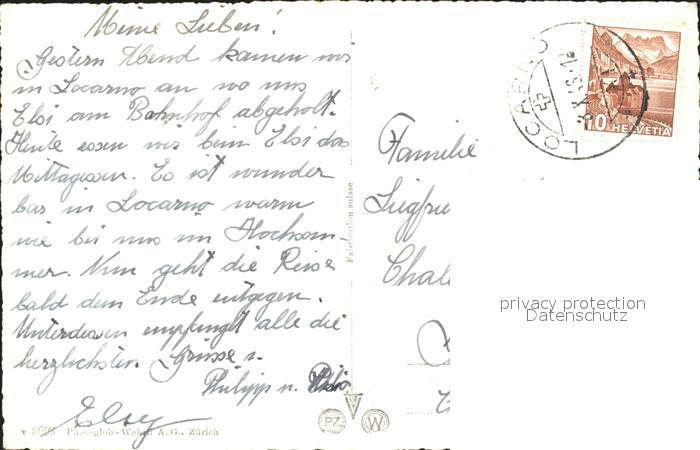 Meine Lieben!
Gestern Abend kamen wir
in Locarno an wo uns
Elsi am Bahnhof abgeholt.
Heute essen wir beim Elsi das
Mittagessen. Es ist wunder
bar in Locarno warm
wie bei uns im Hochsom-
mer. Nun geht die Reise
bald dem Ende entgegen.
Unterdessen empfanget alle die
herzlichsten Grüsse v.
Philipp u.
Elsy
v 8698 Photoglob-Wehrli A. G., Zürich
Fabrication suisse
PZ W
Familie
Siegfrie
Chal
LOCARNO
10 HELVETIA
privacy protection
Datenschutz